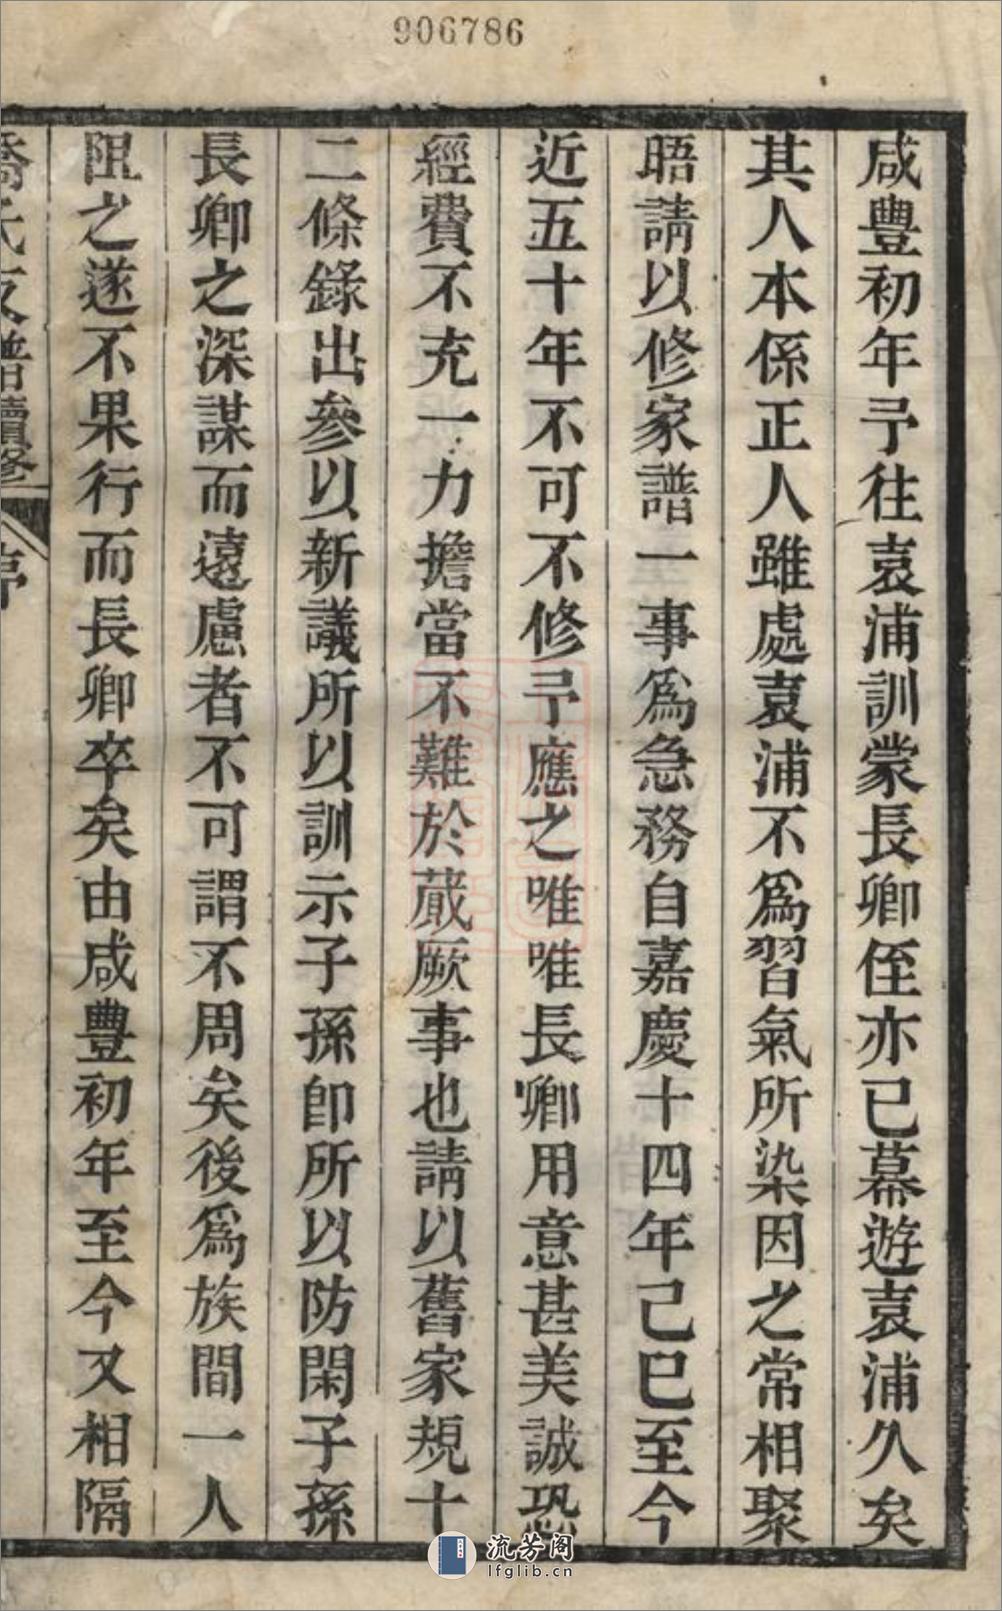 906786
咸豐初年予往袁浦訓蒙長卿侄亦已幕遊袁浦久矣
其人本係正人雖處袁浦不爲習氣所染因之常相聚
晤請以修家譜一事爲急務自嘉慶十四年己巳至今
近五十年不可不修予應之唯唯長卿用意甚美誠恐
經費不充一力擔當不難於蕆厥事也請以舊家規十
二條錄出參以新議所以訓示子孫卽所以防閑子孫
長卿之深謀而遠慮者不可謂不周矣後爲族間一人
阻之遂不果行而長卿卒矣由咸豐初年至今又相隔
喬氏支譜續修 序
流芳阁
lfglib.cn